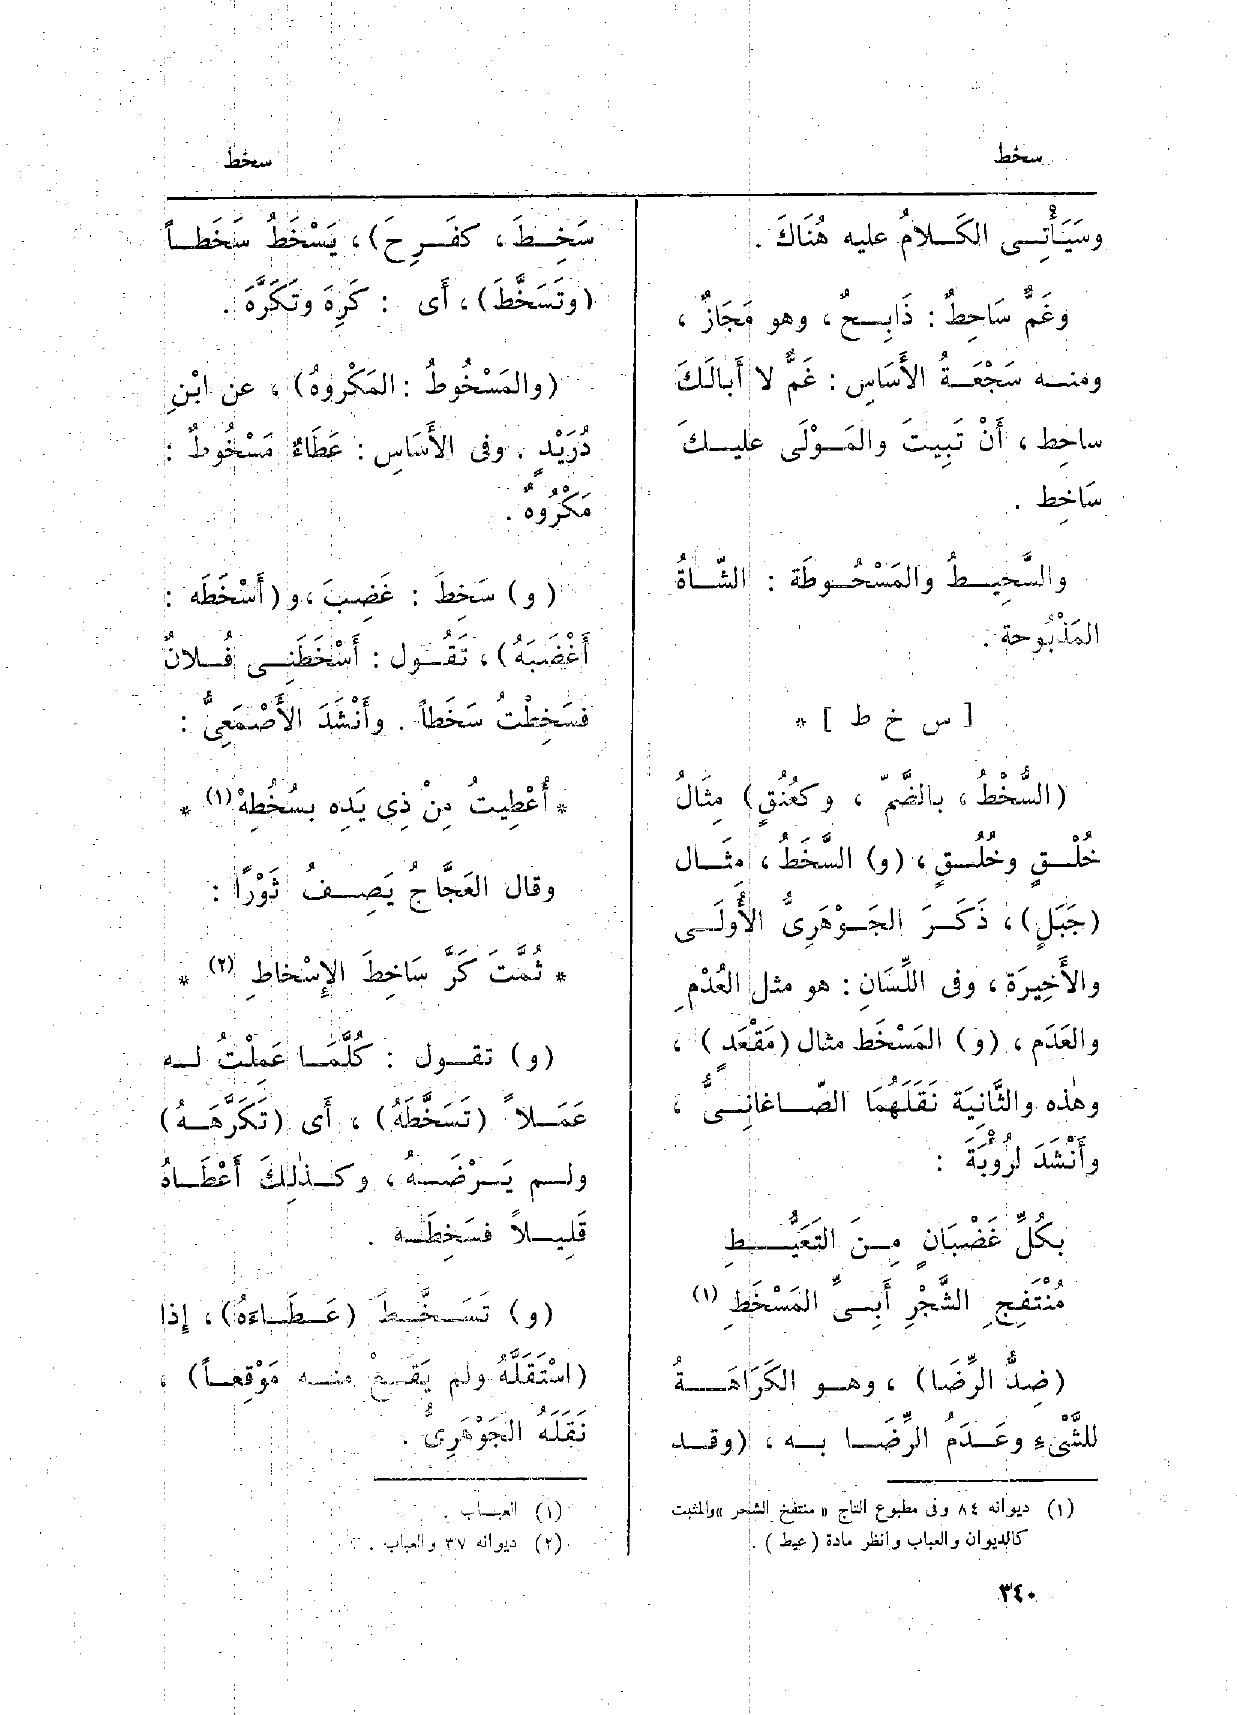 سخط
سخط
وسَيَأْتِى الكَلامُ عليه هُنَاكَ .
وغَمٌّ سَاحِطٌ : ذَابِحٌ ، وهو مَجَازٌ ،
ومنه سَجْعَةُ الأَسَاسِ : غَمٌّ لا أَبالَكَ
ساحِط ، أَنْ تَبِيتَ والمَوْلَى عليك
سَاخِط .
والسَّحِيطُ والمَسْحُوطَة : الشَّاةُ
المَذْبُوحة .
[ س خ ط ] *
(السُّخْطُ ، بالضَّمّ ، وكعُنُقٍ) مِثَالُ
خُلْقٍ وخُلُقٍ ، (و) السَّخَطُ ، مِثَال
(جَبَلٍ) ، ذَكَرَ الجَوْهَرِىُّ الأُولَى
والأَخِيرَة ، وفى اللِّسَانِ : هو مثل العُدْمِ
والعَدَم ، (و) المَسْخَط مثال (مَقْعَدٍ) ،
وهٰذه والثَّانِيَة نَقَلَهُمَا الصّاغانِىُّ ،
وأَنْشَدَ لرُؤْبَةَ :
بكُلِّ غَضْبَانٍ مِنَ التَعَيُّطِ
مُنْتَفِجِ الشَّجْرِ أَبِىٍّ المَسْخَطِ (١)
(ضِدُّ الرِّضَا) ، وهو الكَرَاهَةُ
للشَّىْءِ وعَدَمُ الرِّضَا به ، (وقد
سَخِطَ ، كفَرِحَ) ، يَسْخَطُ سَخَطاً
(وتَسَخَّطَ) ، أَى : كَرِهَ وتَكَرَّهَ .
(والمَسْخُوطُ : المَكْروهُ) ، عن ابْنِ
دُرَيْدٍ . وفى الأَسَاسِ : عَطَاءٌ مَسْخُوطٌ :
مَكْرُوهٌ .
(و) سَخِطَ : غَضِبَ ، و(أَسْخَطَه :
أَغْضَبَهُ) ، تَقُول : أَسْخَطَنِى فُلانٌ
فسَخِطْتُ سَخَطاً . وأَنْشَدَ الأَصْمَعِىُّ :
* أُعْطِيتُ مِنْ ذِى يَدِه بسُخُطِهْ (١) *
وقال العَجَّاجُ يَصِفُ ثَوْرًا :
* ثُمَّتَ كَرَّ سَاخِطَ الإِسْخاطِ (٢) *
(و) تقول : كُلَّمَا عَمِلْتُ له
عَمَلاً (تَسَخَّطَهُ) ، أَى (تَكَرَّهَهُ)
ولم يَرْضَهُ ، وكذٰلِكَ أَعْطَاهُ
قَلِيلاً فسَخِطَه .
(و) تَسَخَّطَ (عَطَاءَهُ) ، إِذا
(اسْتَقَلَّهُ ولم يَقَعْ منه مَوْقِعاً) ،
نَقَلَهُ الجَوْهَرِىُّ .
(١) ديوانه ٨٤ وفى مطبوع التاج « منتفخ الشحر » والمثبت
كالديوان والعباب وانظر مادة (عيط) .
(١) العباب .
(٢) ديوانه ٣٧ والعباب .
٣٤٠